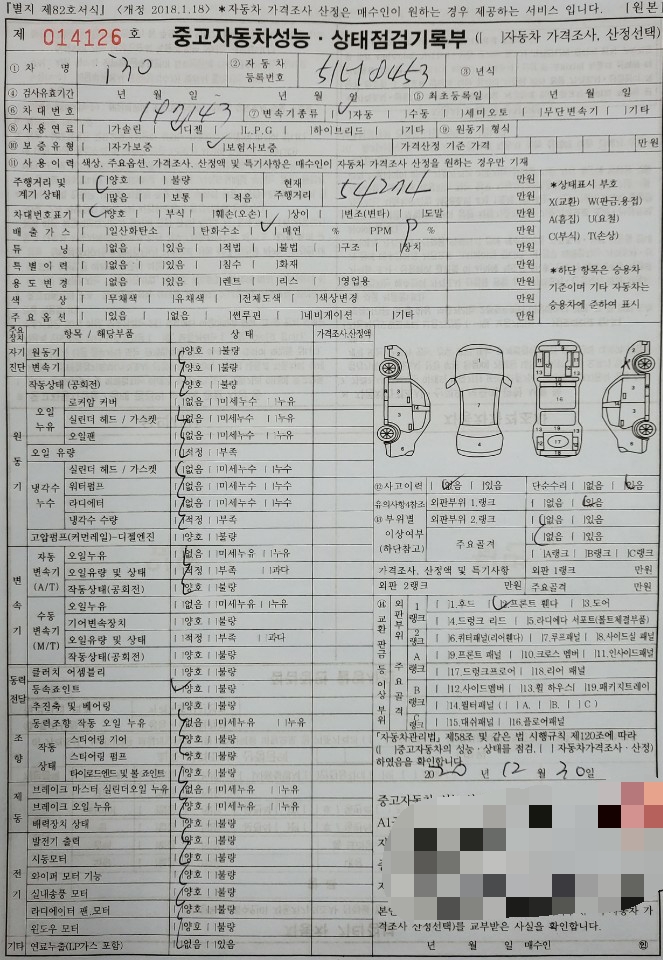 『별지 제82호서식』 〈개정 2018.1.18〉 *자동차 가격조사 산정은 매수인이 원하는 경우 제공하는 서비스 입니다. [원본
제 014126 호 중고자동차성능·상태점검기록부([ ]자동차 가격조사, 산정선택)
① 차 명 i30 ② 자동차등록번호 ③ 년식
④ 검사유효기간 년 월 일 ~ 년 월 일 ⑤ 최초등록일 년 월 일
⑥ 차대번호 192143 ⑦ 변속기종류 [ ]자동 [ ]수동 [ ]세미오토 [ ]무단변속기 [ ]기타
⑧ 사용연료 [ ]가솔린 [ ]디젤 [ ]L.P.G [ ]하이브리드 [ ]기타 ⑨ 원동기 형식
⑩ 보증유형 [ ]자가보증 [✓]보험사보증 가격산정 기준가격 만원
⑪ 사용이력 색상, 주요옵션, 가격조사, 산정액 및 특기사항은 매수인이 자동차 가격조사 산정을 원하는 경우만 기재
주행거리 및 계기 상태 [ ]양호 [ ]불량 현재 주행거리 54274 만원
[ ]많음 [ ]보통 [ ]적음 만원
차대번호표기 [ ]양호 [ ]부식 [ ]훼손(오손) [ ]상이 [ ]변조(변타) [ ]도말 만원
배출가스 [ ]일산화탄소 [ ]탄화수소 [✓]매연 % PPM % 만원
튜닝 [ ]없음 [ ]있음 [ ]적법 [ ]불법 [ ]구조 [ ]장치 만원
특별이력 [ ]없음 [ ]있음 [ ]침수 [ ]화재 만원
용도변경 [ ]없음 [ ]있음 [ ]렌트 [ ]리스 [ ]영업용 만원
색상 [ ]무채색 [ ]유채색 [ ]전체도색 [ ]색상변경 만원
주요옵션 [ ]있음 [ ]없음 [ ]썬루판 [ ]네비게이션 [ ]기타 만원
*상태표시 부호
X(교환) W(판금,용접)
A(흠집) U(요철)
C(부식) T(손상)
*하단 항목은 승용차
기준이며 기타 자동차는
승용차에 준하여 표시
주요장치 항목 / 해당부품 상태 가격조사,산정액
자기진단 원동기 [ ]양호 [ ]불량
변속기 [ ]양호 [ ]불량
원동기 작동상태 (공회전) [ ]양호 [ ]불량
오일누유 로커암 커버 [ ]없음 [ ]미세누수 [ ]누유
실린더 헤드 / 가스켓 [ ]없음 [ ]미세누수 [ ]누유
오일팬 [ ]없음 [ ]미세누수 [ ]누유
오일 유량 [ ]적정 [ ]부족
냉각수누수 실린더 헤드 / 가스켓 [ ]없음 [ ]미세누수 [ ]누수
워터펌프 [ ]없음 [ ]미세누수 [ ]누수
라디에터 [ ]없음 [ ]미세누수 [ ]누수
냉각수 수량 [ ]적정 [ ]부족
고압펌프(커먼레일)-디젤엔진 [ ]양호 [ ]불량
변속기 자동변속기(A/T) 오일누유 [ ]없음 [ ]미세누유 [ ]누유
오일유량 및 상태 [ ]적정 [ ]부족 [ ]과다
작동상태(공회전) [ ]양호 [ ]불량
수동변속기(M/T) 오일누유 [ ]없음 [ ]미세누유 [ ]누유
기어변속장치 [ ]양호 [ ]불량
오일유량 및 상태 [ ]적정 [ ]부족 [ ]과다
작동상태(공회전) [ ]양호 [ ]불량
동력전달 클러치 어셈블리 [ ]양호 [ ]불량
등속죠인트 [✓]양호 [ ]불량
추진축 및 베어링 [ ]양호 [ ]불량
조향 동력조향 작동 오일 누유 [ ]없음 [ ]미세누유 [ ]누유
작동상태 스티어링 기어 [ ]양호 [ ]불량
스티어링 펌프 [ ]양호 [ ]불량
타이로드엔드 및 볼 죠인트 [ ]양호 [ ]불량
제동 브레이크 마스터 실린더오일 누유 [ ]없음 [ ]미세누유 [ ]누유
브레이크 오일 누유 [ ]없음 [ ]미세누유 [ ]누유
배력장치 상태 [ ]양호 [ ]불량
전기 발전기 출력 [ ]양호 [ ]불량
시동모터 [ ]양호 [ ]불량
와이퍼 모터 기능 [ ]양호 [ ]불량
실내송풍 모터 [ ]양호 [ ]불량
라디에이터 팬,모터 [ ]양호 [ ]불량
윈도우 모터 [ ]양호 [ ]불량
기타 연료누출(LP가스 포함) [ ]없음 [ ]있음
⑫사고이력 [ ]없음 [ ]있음 단순수리 [ ]없음 [ ]있음
유의사항4참조 외판부위 1.랭크 [ ]없음 [ ]있음
⑬ 부위별 이상여부 (하단참고) 외판부위 2.랭크 [ ]없음 [ ]있음
주요골격 [ ]없음 [ ]있음
[ ]A랭크 [ ]B랭크 [ ]C랭크
가격조사, 산정액 및 특기사항 외판 1랭크 만원
외판 2랭크 만원 주요골격 만원
⑭ 교환 판금 등 이상 부위
외판부위 1랭크 [ ]1.후드 [ ]2.프론트 휀다 [ ]3.도어
[ ]4.트렁크 리드 [ ]5.라디에다 서포트(볼트체결부품)
2랭크 [ ]6.쿼터패널(리어휀다) [ ]7.루프패널 [ ]8.사이드실 패널
주요골격 A랭크 [ ]9.프론트 패널 [ ]10.크로스 멤버 [ ]11.인사이드패널
[ ]17.트렁크프로어 [ ]18.리어 패널
B랭크 [ ]12.사이드멤버 [ ]13.휠 하우스 [ ]19.패키지트레이
[ ]14.필터패널([ ]A, [ ]B, [ ]C)
C랭크 [ ]15.대쉬패널 [ ]16.플로어패널
「자동차관리법」제58조 및 같은 법 시행규칙 제120조에 따라
([ ]중고자동차의 성능·상태를 점검, [ ]자동차가격조사·산정)
하였음을 확인합니다.
2020 년 12 월 30 일
중고자동차
본인
격조사 산정선택)를 교부받은 사실을 확인합니다.
년 월 일 매수인 ㊞